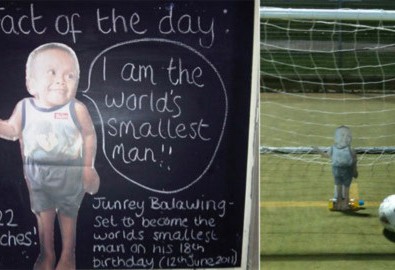 act of the day:
I am the
world's
smallest
man!!
22
ches!
Junrey Balawing -
Set to become the
worlds smallest
man on his 18th
birthday (12th June 2011)